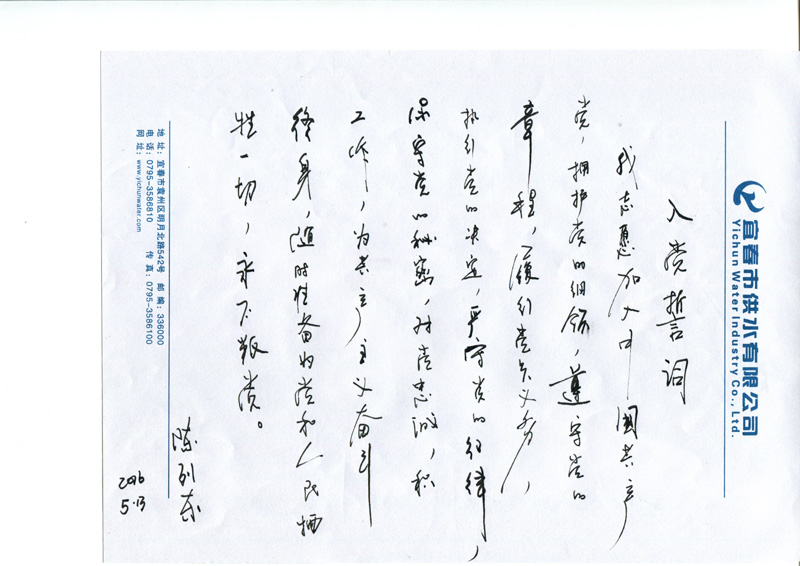 宜春市供水有限公司
Yichun Water Industry Co., Ltd.
入党誓词
我志愿加入中国共产
党，拥护党的纲领，遵守党的
章程，履行党员义务，
执行党的决定，严守党的纪律，
保守党的秘密，对党忠诚，积
工作，为共产主义奋斗
终身，随时准备为党和人民牺
牲一切，永不叛党。
陈列东
2016
5.13
地 址：宜春市袁州区明月北路542号 邮 编：336000
电 话：0795-3586810 传 真：0795-3586100
网 址：www.yichunwater.com